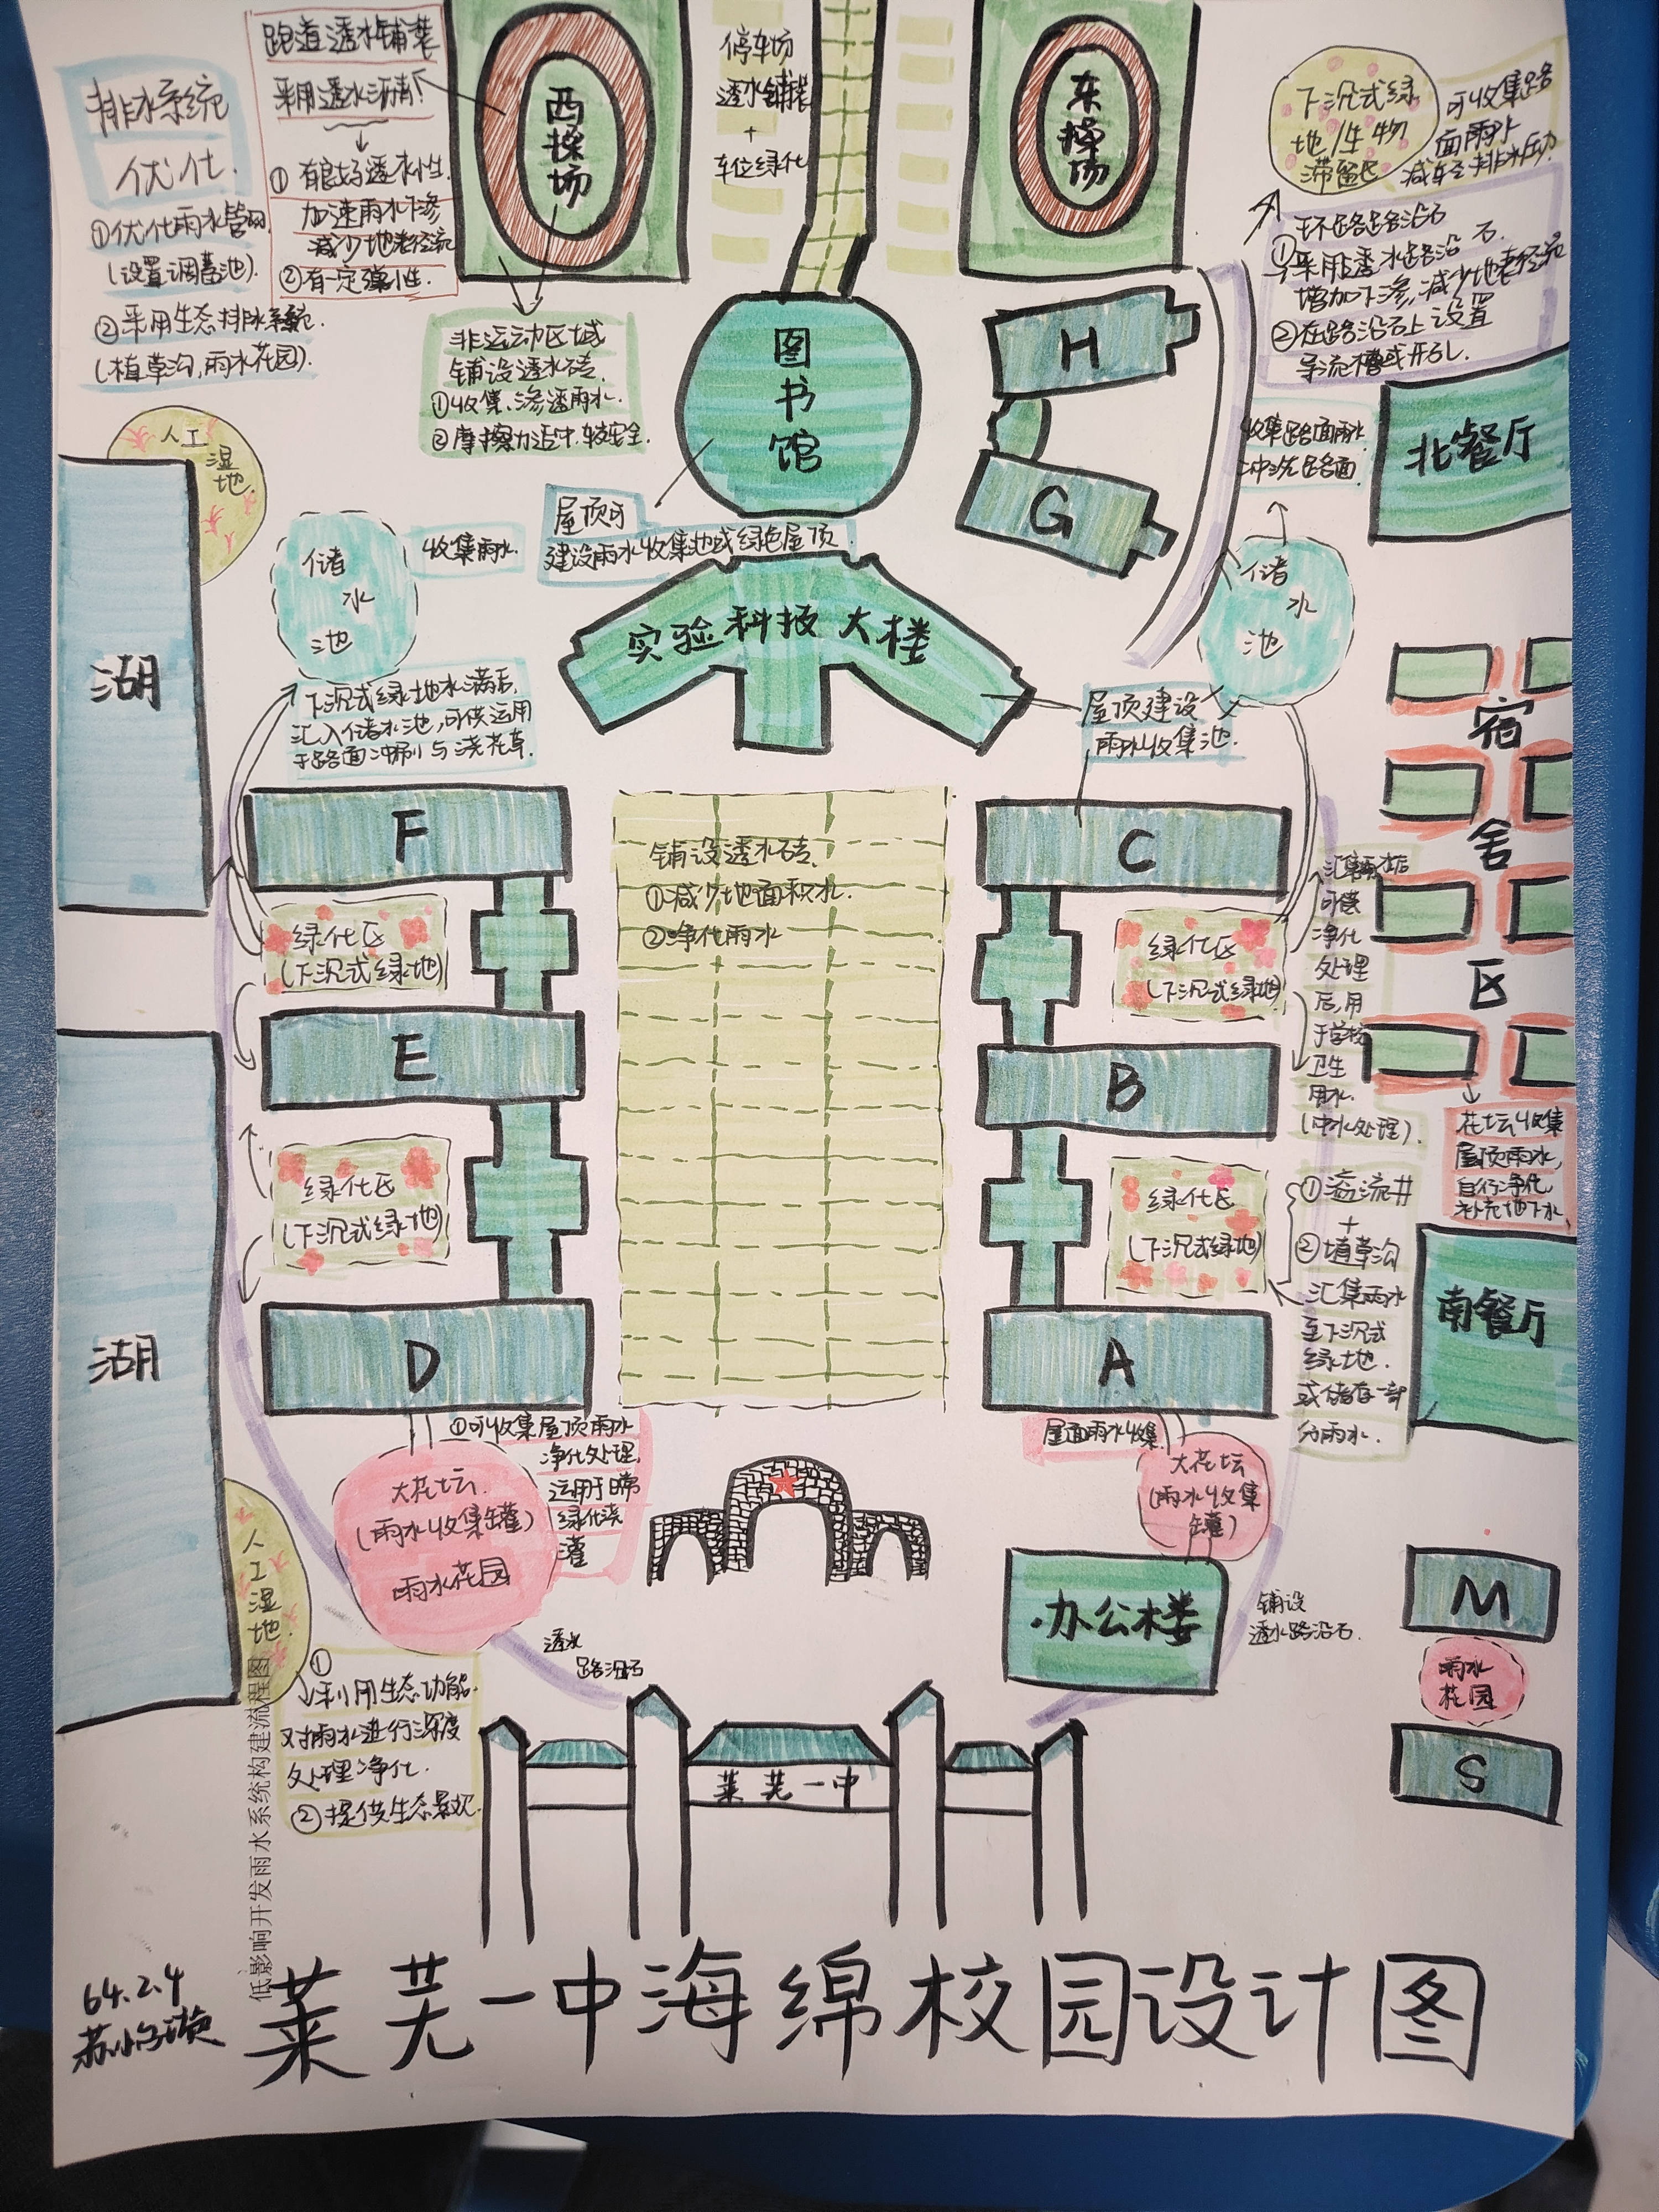 排水系统
优化.
①优化雨水管网
(设置调蓄池).
②采用生态排水系统.
(植草沟,雨水花园).
跑道透水铺装
采用透水沥青!
①有良好透水性.
加速雨水下渗
减少地表径流
②有一定弹性.
西操场
停车场
透水铺装
+
车位绿化
东操场
下沉式绿
地/生物
滞留区
可收集路
面雨水
减轻排水压力.
环路路沿石
①采用透水路沿石.
增加下渗,减少地表径流
②在路沿石上设置
导流槽或开孔.
非运动区域
铺设透水砖.
①收集、渗透雨水.
②摩擦力适中.较安全.
图书馆
H
G
收集路面雨水
冲洗路面
北餐厅
人工
湿
地.
湖
储
水
池
收集雨水.
屋顶可
建设雨水收集池或绿色屋顶
实验科技大楼
储
水
池
下沉式绿地水满后,
汇入储水池,可供运用
于路面冲刷与浇花草.
屋顶建设
雨水收集池.
宿
舍
区
F
铺设透水砖.
①减少地面积水.
②净化雨水
C
绿化区
(下沉式绿地)
绿化区
(下沉式绿地)
可供
净化
处理
后,用
于学校
卫生
用水.
(中水处理).
E
B
花坛收集
屋顶雨水,
自行净化,
补充地下水
绿化区
(下沉式绿地)
绿化区
(下沉式绿地)
①溢流井
+
②植草沟
汇集雨水
至下沉式
绿地.
或储存一部
分雨水.
南餐厅
湖
D
A
①可收集屋顶雨水
净化处理,
运用于日常
绿化浇
灌
大花坛.
(雨水收集罐)
雨水花园
屋面雨水收集
大花坛
(雨水收集
罐)
人
工
湿
地.
办公楼
铺设
透水路沿石.
M
雨水
花园
S
透水
路沿石
①利用生态功能.
对雨水进行深度
处理净化.
②提供生态景观.
莱芜一中
低影响开发雨水系统构建流程图
64.2.4
莱芜一中海绵校园设计图